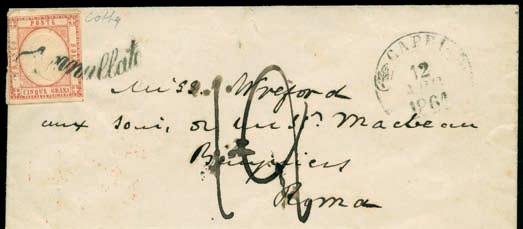 Cotta
POSTE
CINQUE GRANA
Annullato
CAPRI
12
1861
19
Miss Wreford
aux soins de Mr. Macbean
Banquiers
Roma